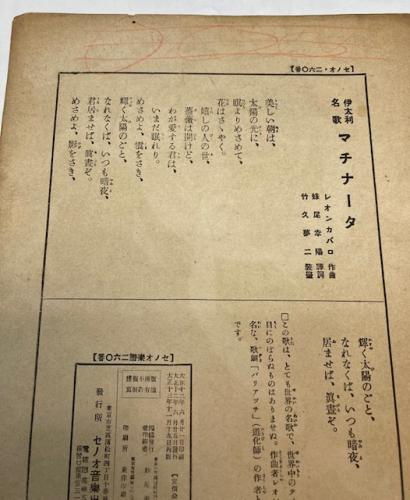 【セノオ・二六〇番】
伊太利
名歌
マチナータ
レオンカバロ 作曲
妹尾幸陽 譯詞
竹久夢二 裝畫
美しい朝は、
太陽の光に、
眠よりめさめて、
花はさゝやく。
嬉しの人の世、
薔薇は開けど、
わが愛する君は、
いまだ眠れり。
めさめよ、雲をさき、
輝く太陽のごと、
なれなくば、いつも暗夜、
君居ませば、眞晝ぞ。
めさめよ、影をさき、
輝く太陽のごと、
なれなくば、いつも暗夜、
居ませば、眞晝ぞ。
□この歌は、とても世界の名歌で、世界中の
目にのぼらぬものはありませぬ。作曲者レオ
名な、歌劇「パリアツチ」(道化師)の作者
です。
【セノオ樂譜二六〇番】
發行所 セノオ音樂出